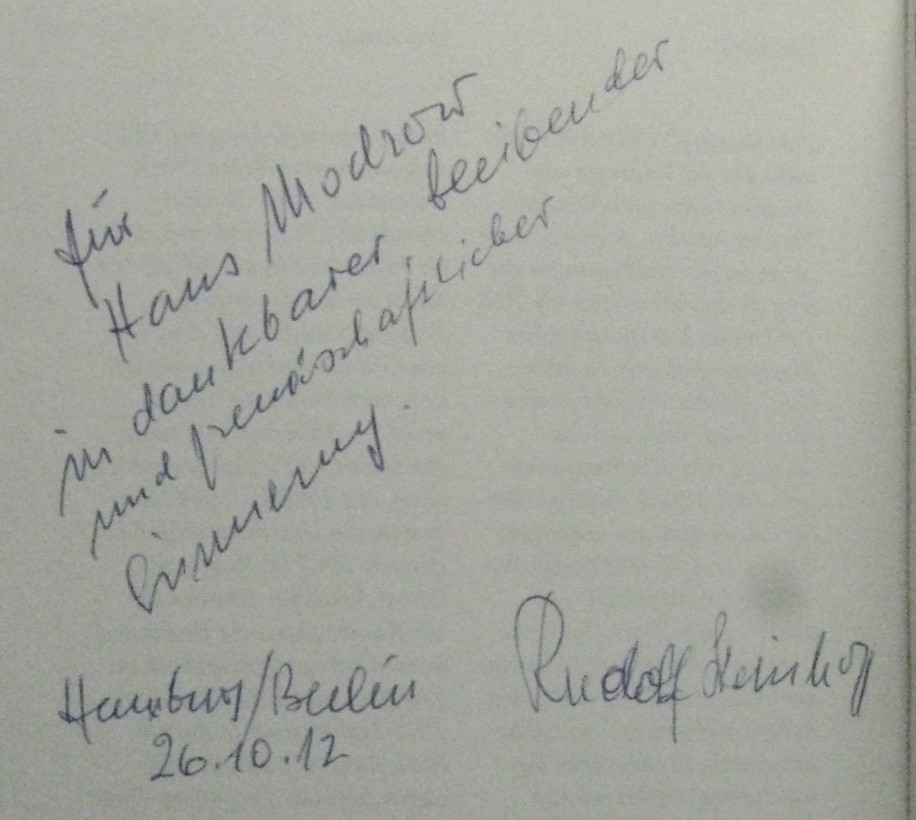 für
Hans Modrow
in dankbarer bleibender
und freundschaftlicher
Erinnerung.
Hamburg/Berlin
26.10.12
Rudolf Steinhoff